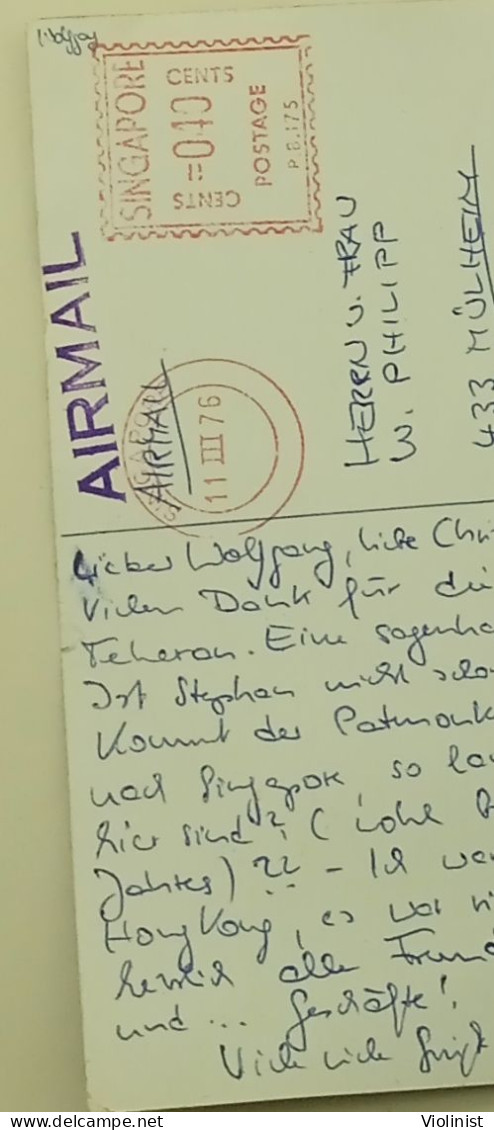 SINGAPORE
CENTS
=040
CENTS
POSTAGE
P B.175
AIRMAIL
AIRMAIL
11 III 76
HERRN U. FRAU
W. PHILIPP
433 MÜLHEIM
Lieber Wolfgang, liebe Chri
Vielen Dank für die
Teheran. Eine sagenha
Ist Stephan nicht scho
Kommt der
nach Singapore, so lan
hier sind? (
Jahres) ?? - Ich war
Hong Kong, es war
herrlich alle Freund
und ... Geschäfte!
Viele liebe Grüße
delcampe.net
Violinist